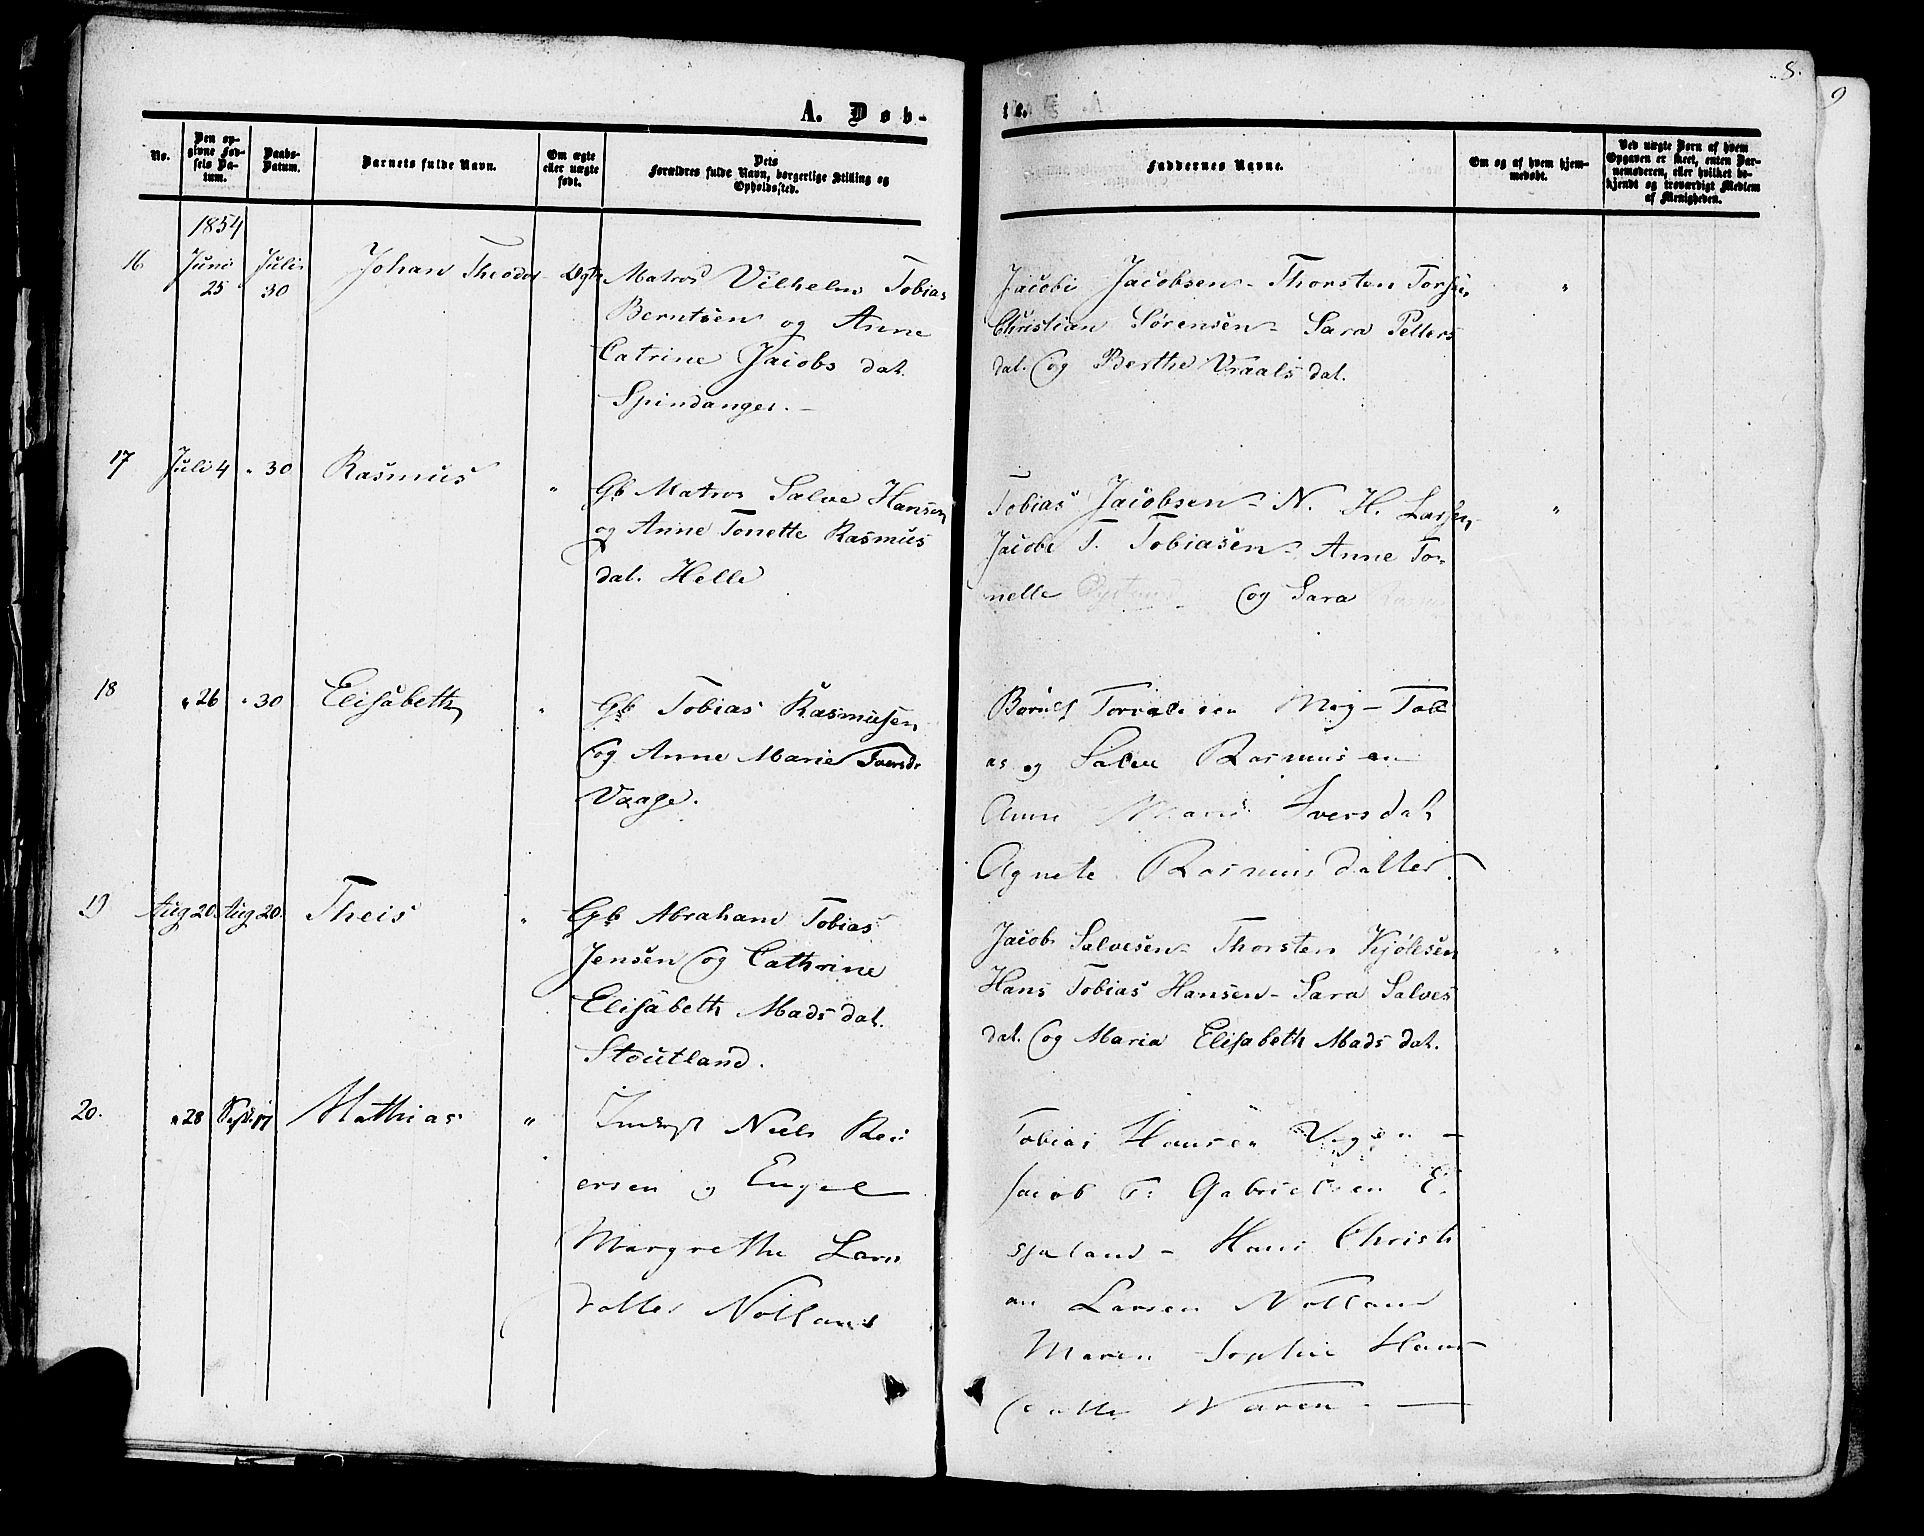 A. Døb-
No.
Den op-
givne Fød-
sels Da-
tum.
Daabs-
Datum.
Barnets fulde Navn.
Om ægte
eller uægte
født.
Dets
Forældres fulde Navn, borgerlige Stilling og
Opholdssted.
1854
16
Juni
25
Juli
30
Johan Theodor
Ægte
Matros Vilhelm Tobias
Berntsen og Anne
Catrine Jacobs dat.
Spindanger.
17
Juli 4
" 30
Rasmus
"
Gb Matros Salve Hansen
og Anne Tonette Rasmus
dat. Helle
18
" 26
" 30
Elisabeth
"
Gb Tobias Rasmusen
og Anne Marie Iversd.
Vaage.
19
Aug 20
Aug 20.
Theis
"
Gb Abraham Tobias
Jensen og Cathrine
Elisabeth Mads dat.
Stoutland.
20.
" 28
Sept 17
Mathias
"
Inderst Niels Rei
ersen og Engel
Margrethe Lars
datter Nötland
te.
8.
9
Faddernes Navne.
Om og af hvem hjem-
medøbt.
Ved uægte Børn af hvem
Opgaven er skeet, enten Bar-
nemoderen, eller hvilket be-
kjendt og troværdigt Medlem
af Menigheden.
Jacob Jacobsen - Thorsten Torsen
Christian Sørensen - Sara Petters
dat. og Berthe Vraals dat.
"
Tobias Jacobsen - N. H. Larsen
Jacob T. Tobiasen - Anne To-
nette og Sara
"
Tob
as og Salve Rasmusen
Anne Marie Iversdat
Agnete Rasmusdatter.
Jacob Salvesen - Thorsten Kjöllsen
Hans Tobias Hansen - Sara Salves
dat. og Maria Elisabeth Mads dat.
"
Tobias Hansen
Jacob T. Gabrielsen E.
Hans Christi
an Larsen Nötland
Maren Sophie Hans
datter